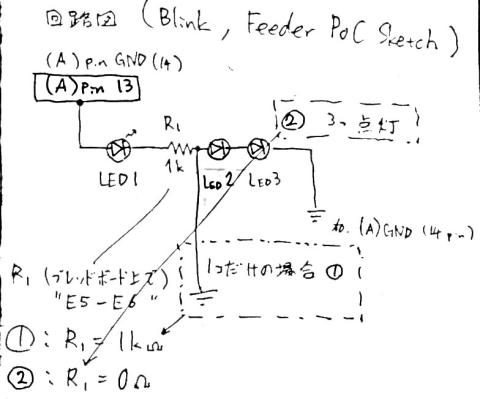 回路図 (Blink, Feeder PoC Sketch)
(A) pin GND (14)
(A) Pin 13
R1
1k
LED1
LED2
LED3
② 3つ点灯
to. (A) GND (14 pin)
1コだけの場合 ①
R1 (ブレッドボード上で)
"E5-E6"
①: R1 = 1kΩ
②: R1 = 0Ω